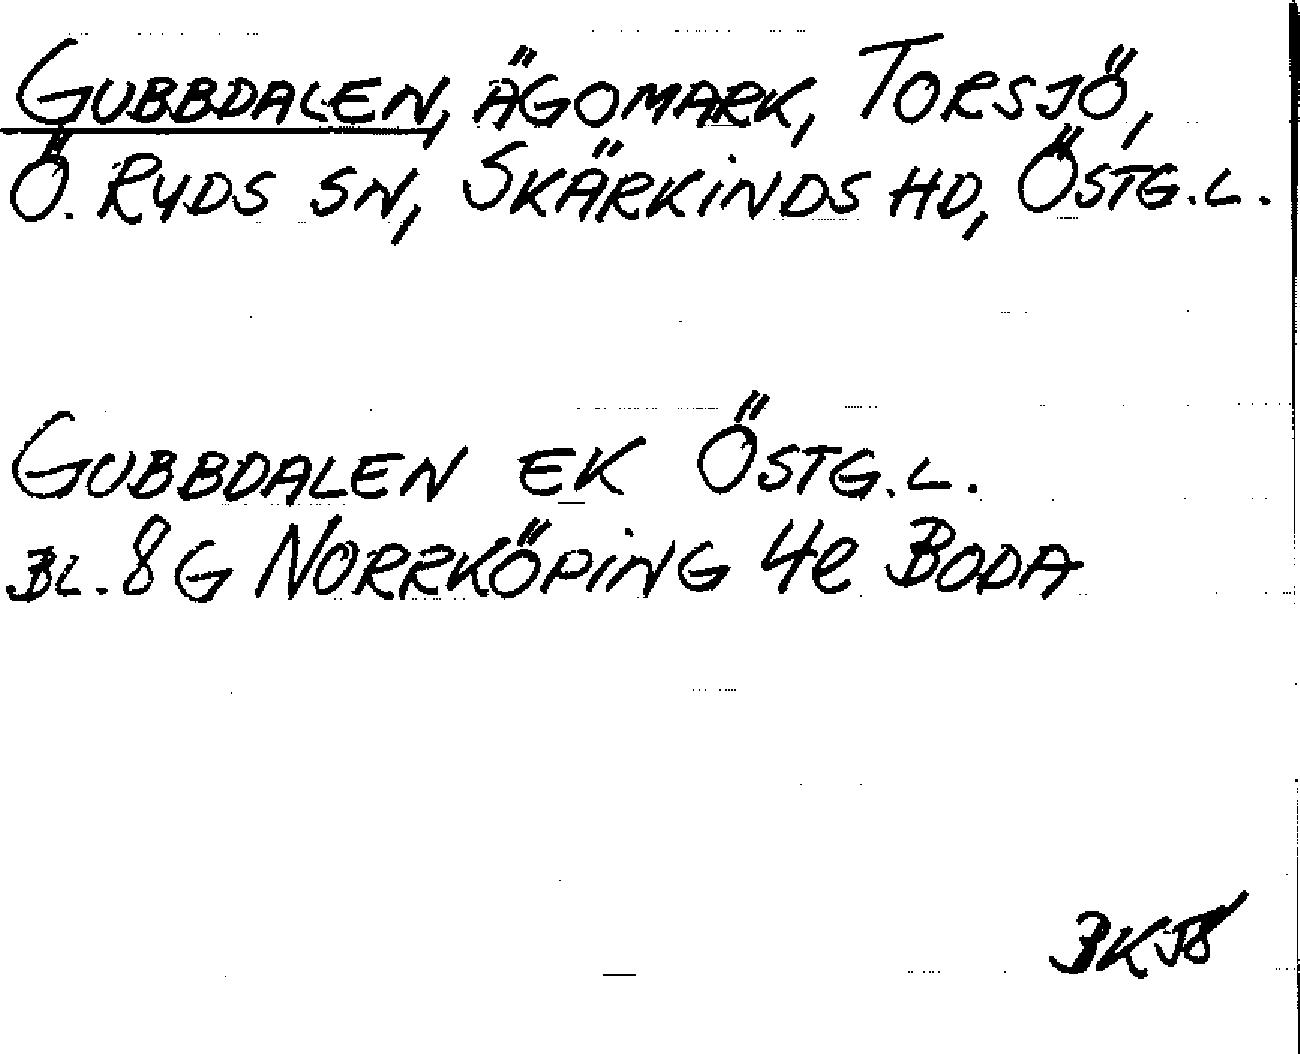 GUBBDALEN, ÄGOMARK, TORSJÖ,
Ö. RYDS SN, SKÄRKINDS HD, ÖSTG.L.
GUBBDALEN EK ÖSTG.L.
BL. 8G NORRKÖPING 4e BODA